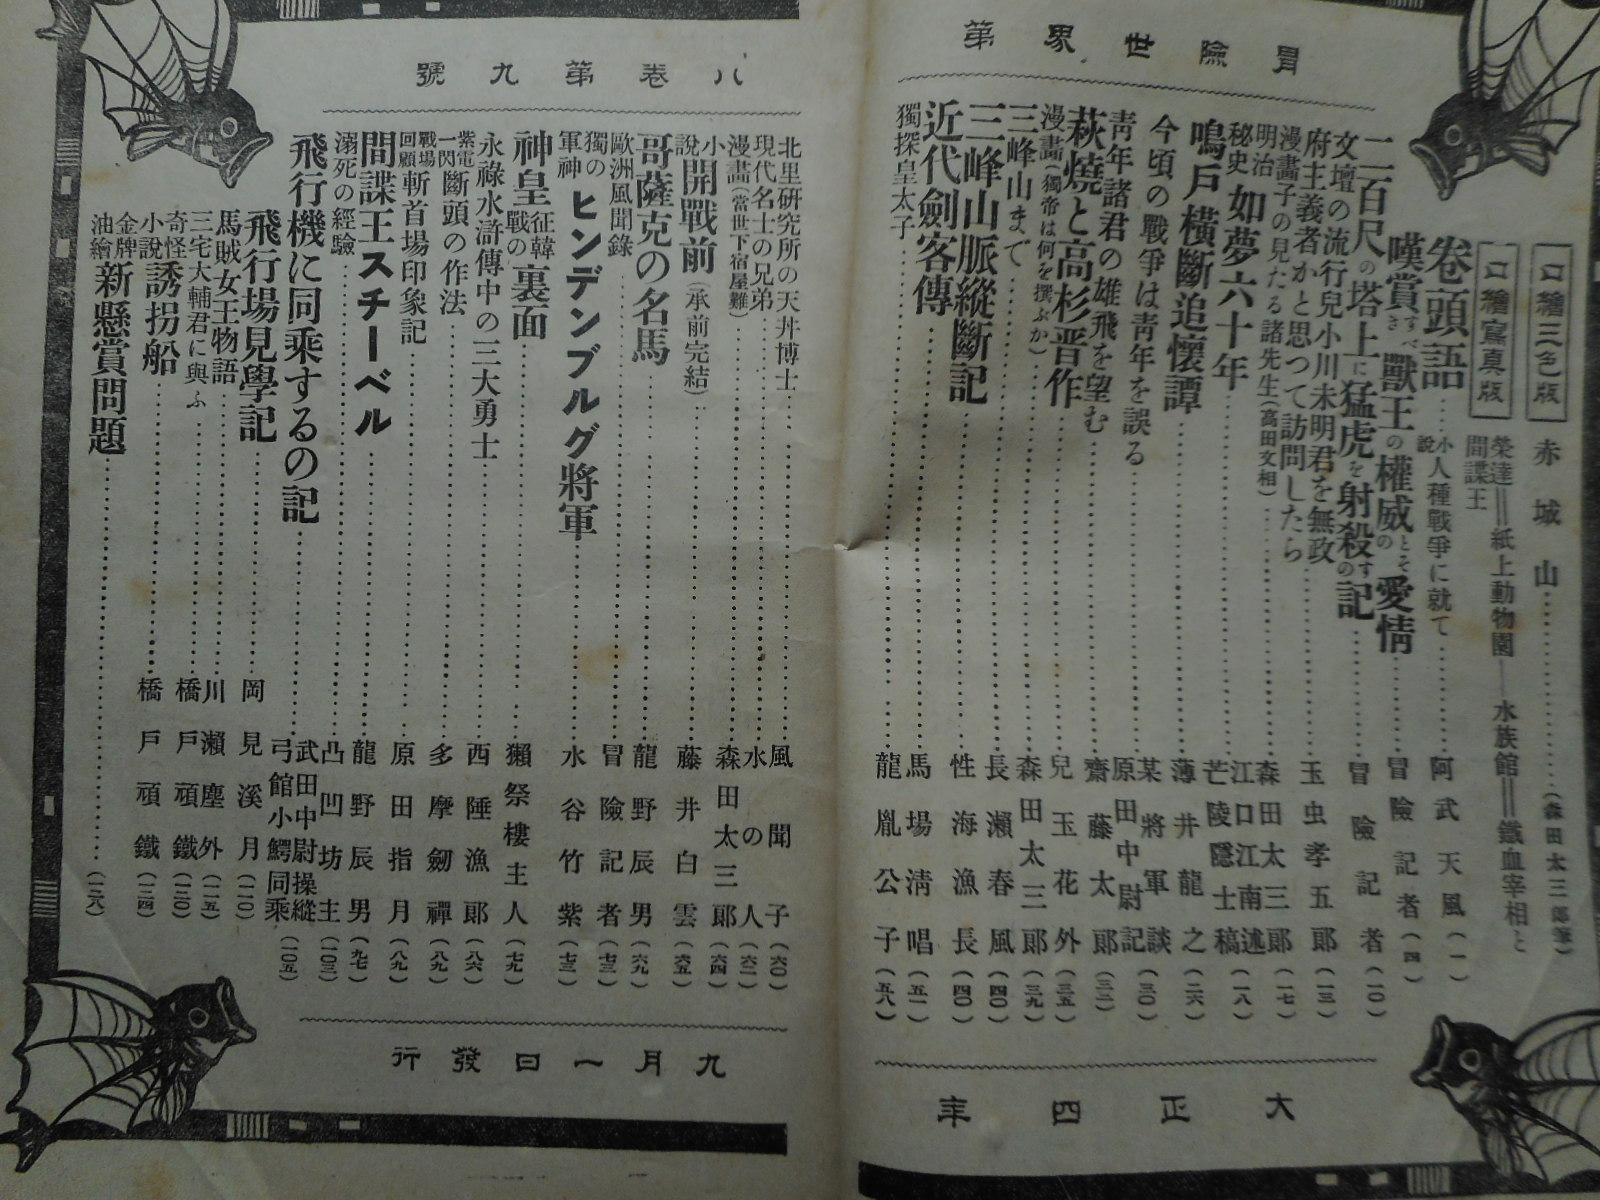 冒險世界第
八卷第九號
口繪三色版 赤城山……(森田太三郎筆)
口繪寫真版 榮達＝紙上動物園―水族館＝鐵血宰相と間諜王
卷頭語……小說人種戰爭に就て……阿武天風(一)
嘆賞すべき獸王の權威とその愛情……冒險記者(四)
二百尺の塔上に猛虎を射殺すの記……冒險記者(一〇)
文壇の流行兒小川未明君を無政府主義者かと思つて訪問したら……玉虫孝五郎(一三)
漫畫子の見たる諸先生(高田文相)……森田太三郎(一七)
明治秘史如夢六十年……江口江南述 芒陵隱士稿(一八)
鳴戶橫斷追懷譚……薄井龍之(二六)
今頃の戰爭は靑年を誤る……某將軍談 原田中尉記(三〇)
靑年諸君の雄飛を望む……齋藤太郎(三二)
萩燒と高杉晋作……兒玉花外(三五)
漫畫(獨帝は何を撰ぶか)……森田太三郎(三九)
三峰山まで……長瀨春風(四〇)
三峰山脈縱斷記……性海漁長(四〇)
近代劍客傳……馬場淸唱(五一)
獨探皇太子……龍胤公子(五八)
北里硏究所の天井博士……風聞子(六〇)
現代名士の兄弟……水の人(六二)
漫畫(當世下宿屋難)……森田太三郎(六四)
小說開戰前(承前完結)……藤井白雲(六五)
哥薩克の名馬……龍野辰男(六九)
歐洲風聞錄……冒險記者(七三)
獨の軍神ヒンデンブルグ將軍……水谷竹紫(七三)
神皇征韓戰の裏面……獺祭樓主人(七九)
永祿水滸傳中の三大勇士……西陲漁郞(八六)
紫電一閃斷頭の作法……多摩劒禪(八九)
戰場回顧斬首場印象記……原田指月(八九)
間諜王スチーベル……龍野辰男(九七)
溺死の經驗……凸凹坊主(一〇三)
飛行機に同乘するの記……武田中尉操縱 弓館小鰐同乘(一〇五)
飛行場見學記……岡見溪月(一一〇)
馬賊女王物語……川瀨塵外(一一五)
三宅大輔君に與ふ……橋戶頑鐵(一三〇)
奇怪小說誘拐船……橋戶頑鐵(一三四)
金牌油繪新懸賞問題……(一三八)
大正四年
九月一日發行